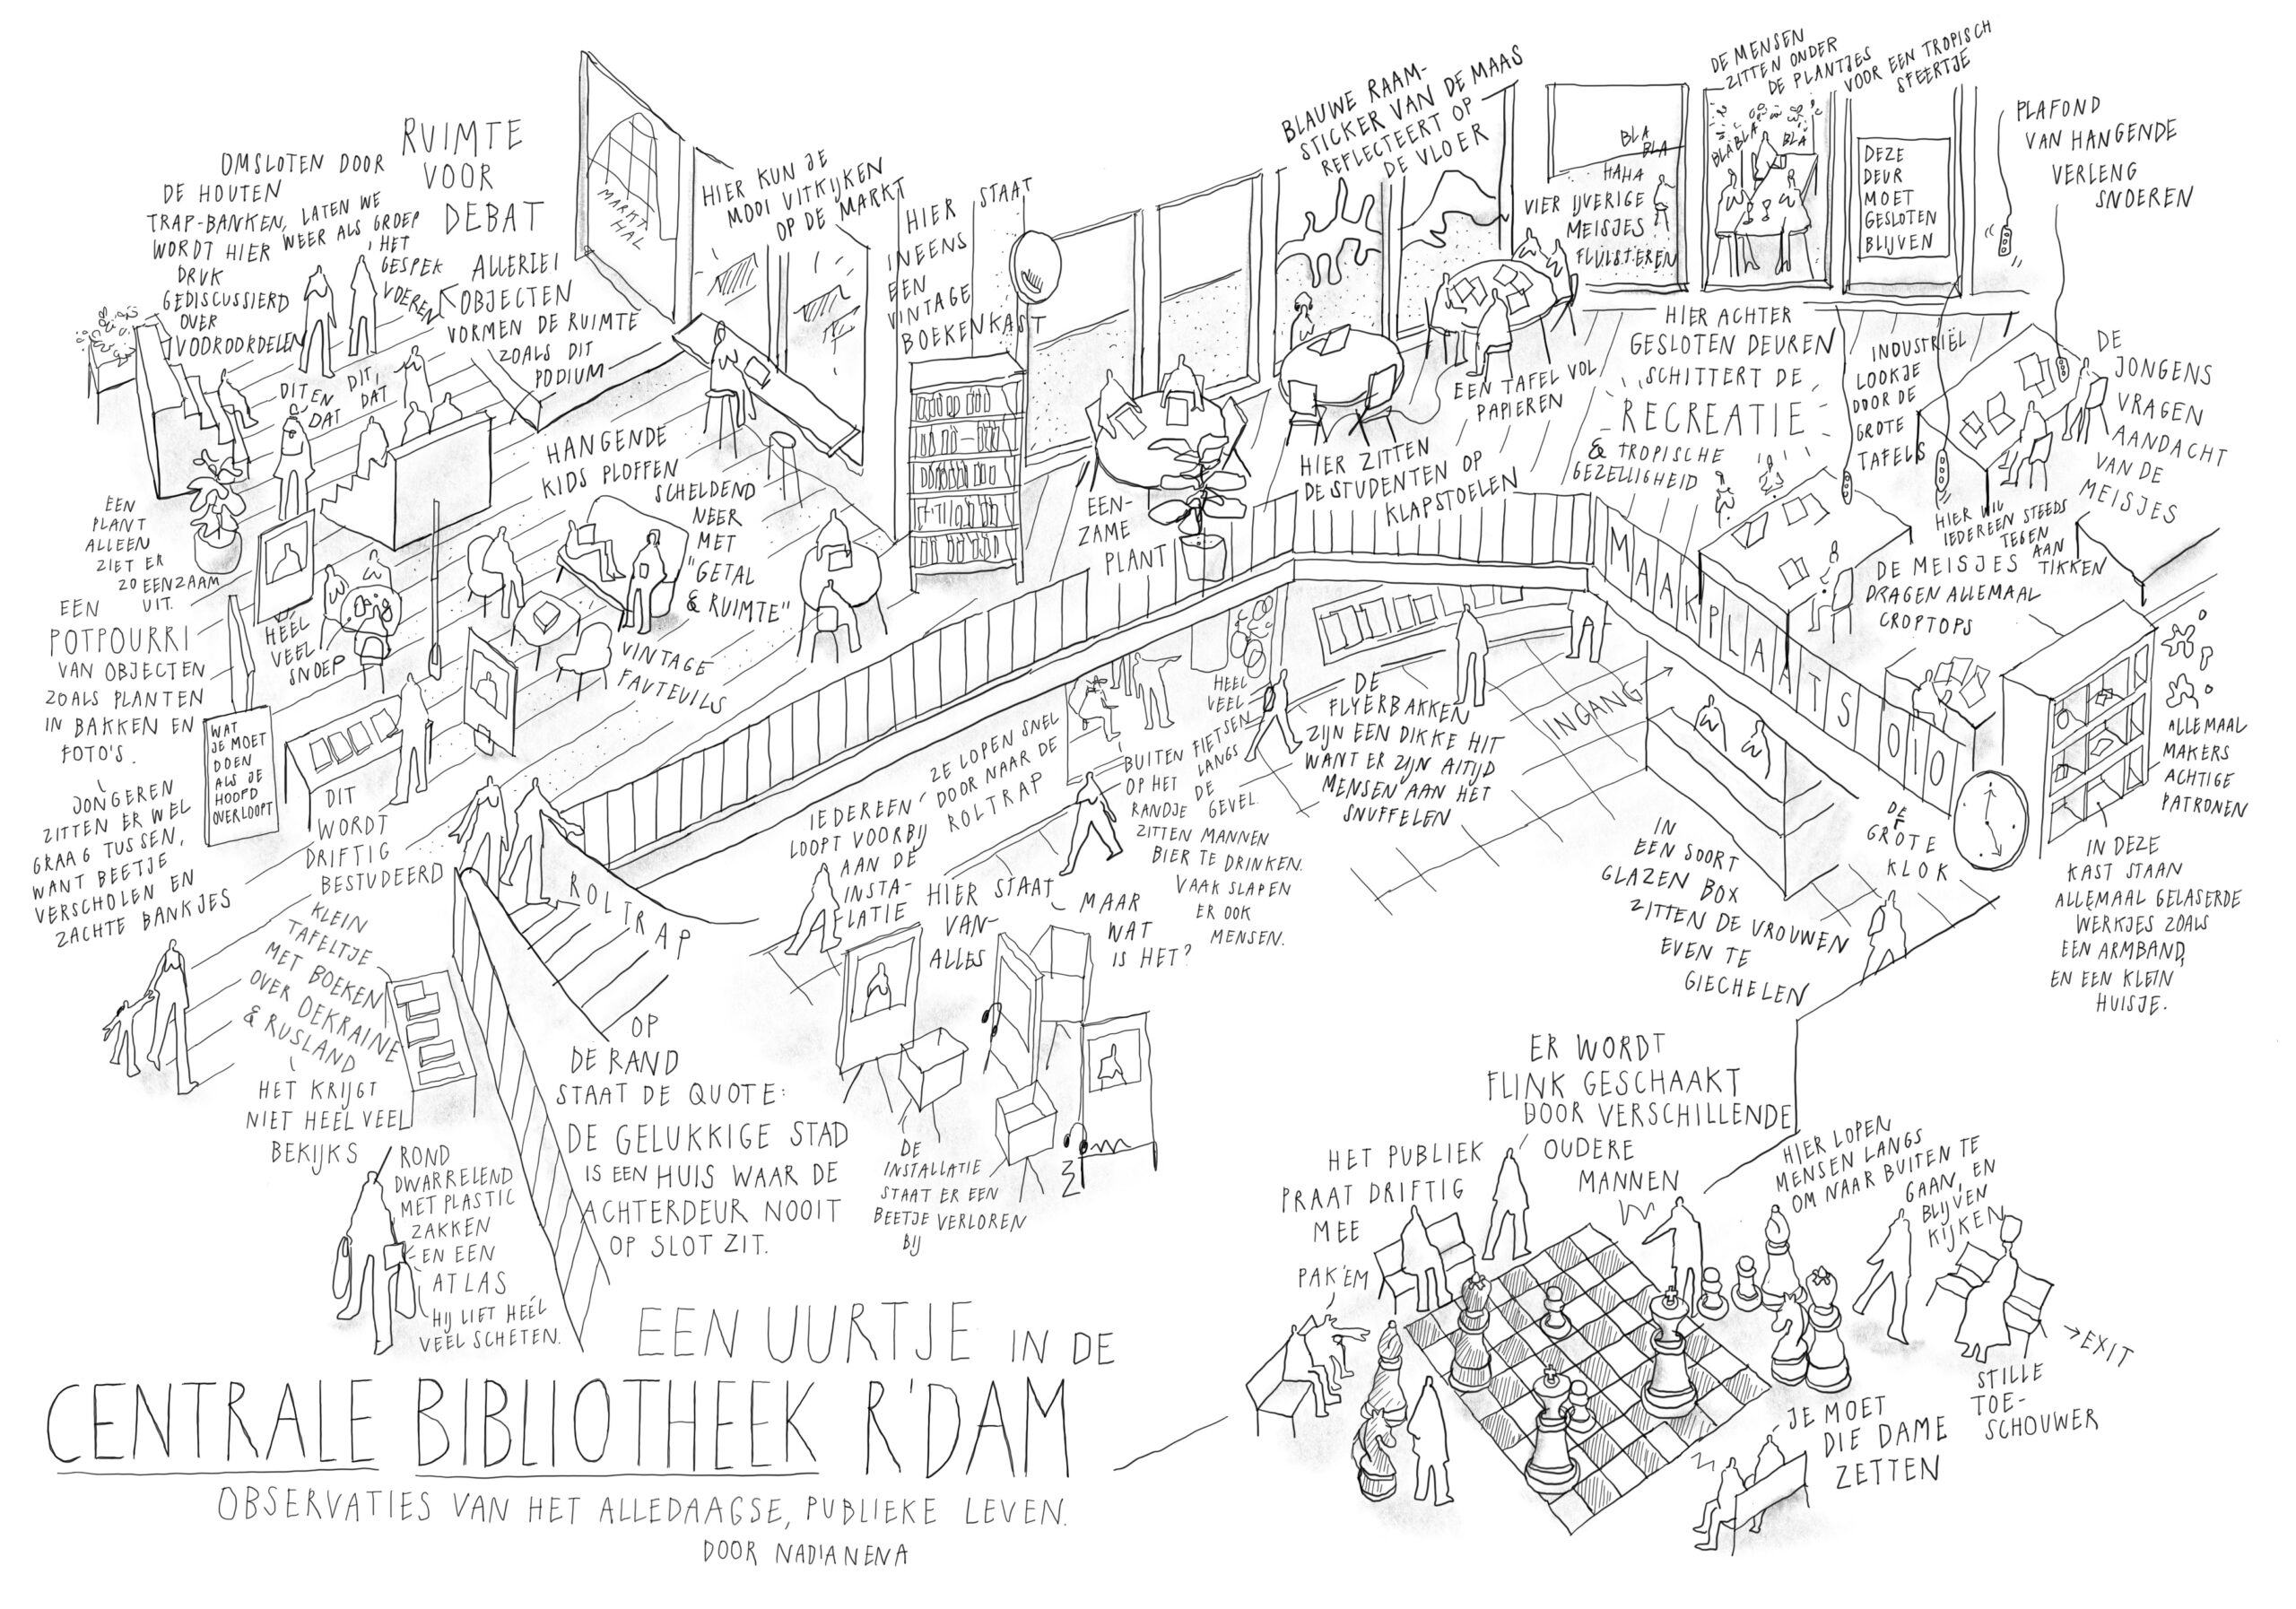 RUIMTE
VOOR
DEBAT
OMSLOTEN DOOR
DE HOUTEN
TRAP-BANKEN,
WORDT HIER
DRUK
GEDISCUSSIERD
OVER
VOOROORDELEN
LATEN WE
WEER ALS GROEP
HET
GESPEK
VOEREN
DIT EN
DAT
DIT,
DAT
ALLERIEI
OBJECTEN
VORMEN DE RUIMTE
ZOALS DIT
PODIUM
MARKT
HAL
HIER KUN JE
MOOI UITKIJKEN
OP DE MARKT
HIER STAAT
INEENS
EEN
VINTAGE
BOEKENKAST
BLAUWE RAAM-
STICKER VAN DE MAAS
REFLECTEERT OP
DE VLOER
BLA
BLA
HAHA
VIER IJVERIGE
MEISJES
FLUISTEREN
DE MENSEN
ZITTEN ONDER
DE PLANTJES
VOOR EEN TROPISCH
SFEERTJE
BLA
BLA
BLA
BLA
DEZE
DEUR
MOET
GESLOTEN
BLIJVEN
PLAFOND
VAN HANGENDE
VERLENG
SNOEREN
HIER ACHTER
GESLOTEN DEUREN
SCHITTERT DE
RECREATIE
& TROPISCHE
GEZELLIGHEID
INDUSTRIËL
LOOKJE
DOOR DE
GROTE
TAFELS
DE
JONGENS
VRAGEN
AANDACHT
VAN DE
MEISJES
HIER WIL
IEDEREEN STEEDS
TEGEN
AAN
TIKKEN
DE MEISJES
DRAGEN ALLEMAAL
CROPTOPS
EEN TAFEL VOL
PAPIEREN
HIER ZITTEN
DE STUDENTEN OP
KLAPSTOELEN
EEN-
ZAME
PLANT
HANGENDE
KIDS PLOFFEN
SCHELDEND
NEER
MET
"GETAL
& RUIMTE"
VINTAGE
FAUTEUILS
EEN
PLANT
ALLEEN
ZIET ER
ZO EENZAAM
UIT.
HÉÉL
VEEL
SNOEP
EEN
POTPOURRI
VAN OBJECTEN
ZOALS PLANTEN
IN BAKKEN EN
FOTO'S.
JONGEREN
ZITTEN ER WEL
GRAAG TUSSEN,
WANT BEETJE
VERSCHOLEN EN
ZACHTE BANKJES
WAT
JE MOET
DOEN
ALS JE
HOOFD
OVERLOOPT
DIT
WORDT
DRIFTIG
BESTUDEERD
MAAKPLAATS 010
INGANG
HEEL
VEEL
FIETSEN
LANGS
DE
GEVEL.
DE
FLYERBAKKEN
ZIJN EEN DIKKE HIT
WANT ER ZIJN ALTIJD
MENSEN AAN HET
SNUFFELEN
BUITEN
OP HET
RANDJE
ZITTEN MANNEN
BIER TE DRINKEN.
VAAK SLAPEN
ER OOK
MENSEN.
IEDEREEN
LOOPT VOORBIJ
AAN DE
INSTA-
LATIE
ZE LOPEN SNEL
DOOR NAAR DE
ROLTRAP
ROLTRAP
HIER STAAT
VAN-
ALLES
MAAR
WAT
IS HET?
IN
EEN SOORT
GLAZEN BOX
ZITTEN DE VROUWEN
EVEN TE
GIECHELEN
DE
GROTE
KLOK
ALLEMAAL
MAKERS
ACHTIGE
PATRONEN
IN DEZE
KAST STAAN
ALLEMAAL GELASERDE
WERKJES ZOALS
EEN ARMBAND,
EN EEN KLEIN
HUISJE.
KLEIN
TAFELTJE
MET BOEKEN
OVER OEKRAINE
& RUSLAND
HET KRIJGT
NIET HEEL VEEL
BEKIJKS
ROND
DWARRELEND
MET PLASTIC
ZAKKEN
EN EEN
ATLAS
HIJ LIET HEÉL
VEEL SCHETEN.
OP
DE RAND
STAAT DE QUOTE:
DE GELUKKIGE STAD
IS EEN HUIS WAAR DE
ACHTERDEUR NOOIT
OP SLOT ZIT.
DE
INSTALLATIE
STAAT ER EEN
BEETJE VERLOREN
BIJ
ER WORDT
FLINK GESCHAAKT
DOOR VERSCHILLENDE
OUDERE
MANNEN
HET PUBLIEK
PRAAT DRIFTIG
MEE
PAK'EM
HIER LOPEN
MENSEN LANGS
OM NAAR BUITEN TE
GAAN, EN
BLIJVEN
KIJKEN
EXIT
STILLE
TOE-
SCHOUWER
JE MOET
DIE DAME
ZETTEN
EEN UURTJE IN DE
CENTRALE BIBLIOTHEEK R'DAM
OBSERVATIES VAN HET ALLEDAAGSE, PUBLIEKE LEVEN.
DOOR NADIANENA